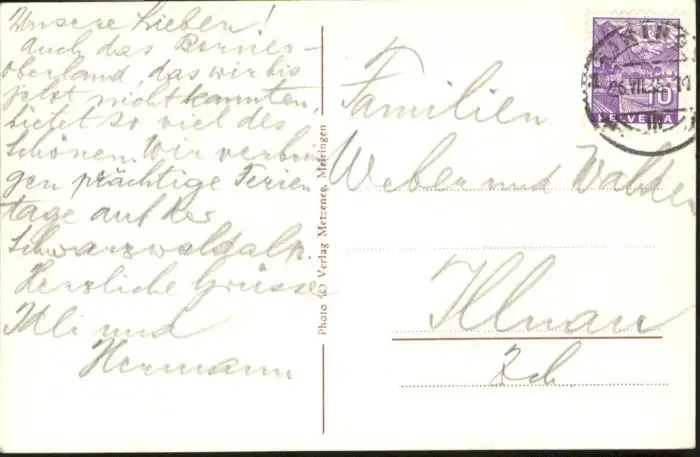 Unsere Lieben!
Auch das Berner-
oberland, das wir bis
jetzt nicht kannten,
bietet so viel des
Schönen. Wir verbrin-
gen prächtige Ferien
tage auf der
Schwarzwaldalp.
Herzliche Grüsse
Idli und
Hermann
Photo & Verlag Metzener, Meiringen
Familien
Weber und Walder
Illnau
Zch.
26.VII.
10
HELVETIA